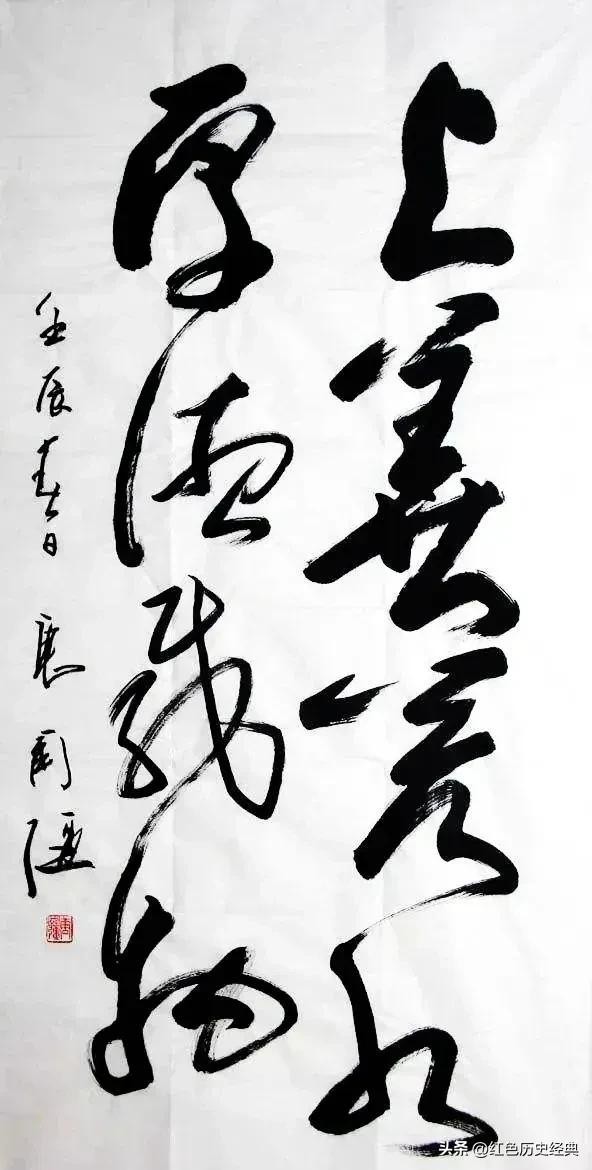 上善若水
厚德载物
壬辰春日 周
头条 @红色历史经典